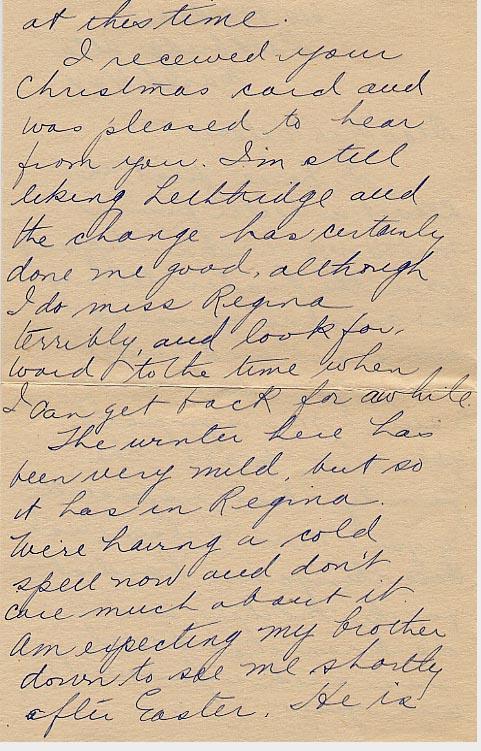 at this time.
I received your
Christmas card and
was pleased to hear
from you. I'm still
liking Lethbridge and
the change has certainly
done me good, although
I do miss Regina
terribly, and look for-
ward to the time when
I can get back for awhile.
The winter here has
been very mild, but so
it has in Regina.
We're having a cold
spell now and don't
care much about it.
Am expecting my brother
down to see me shortly
after Easter. He is